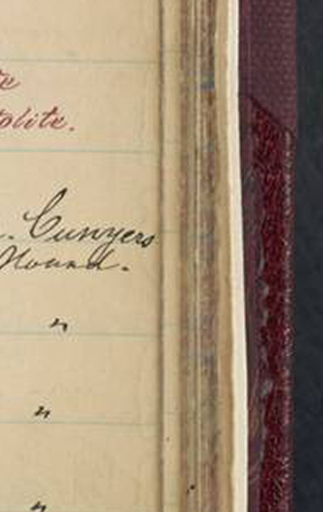 te
tolite.
. Cunyers
Mound.
"
"
"